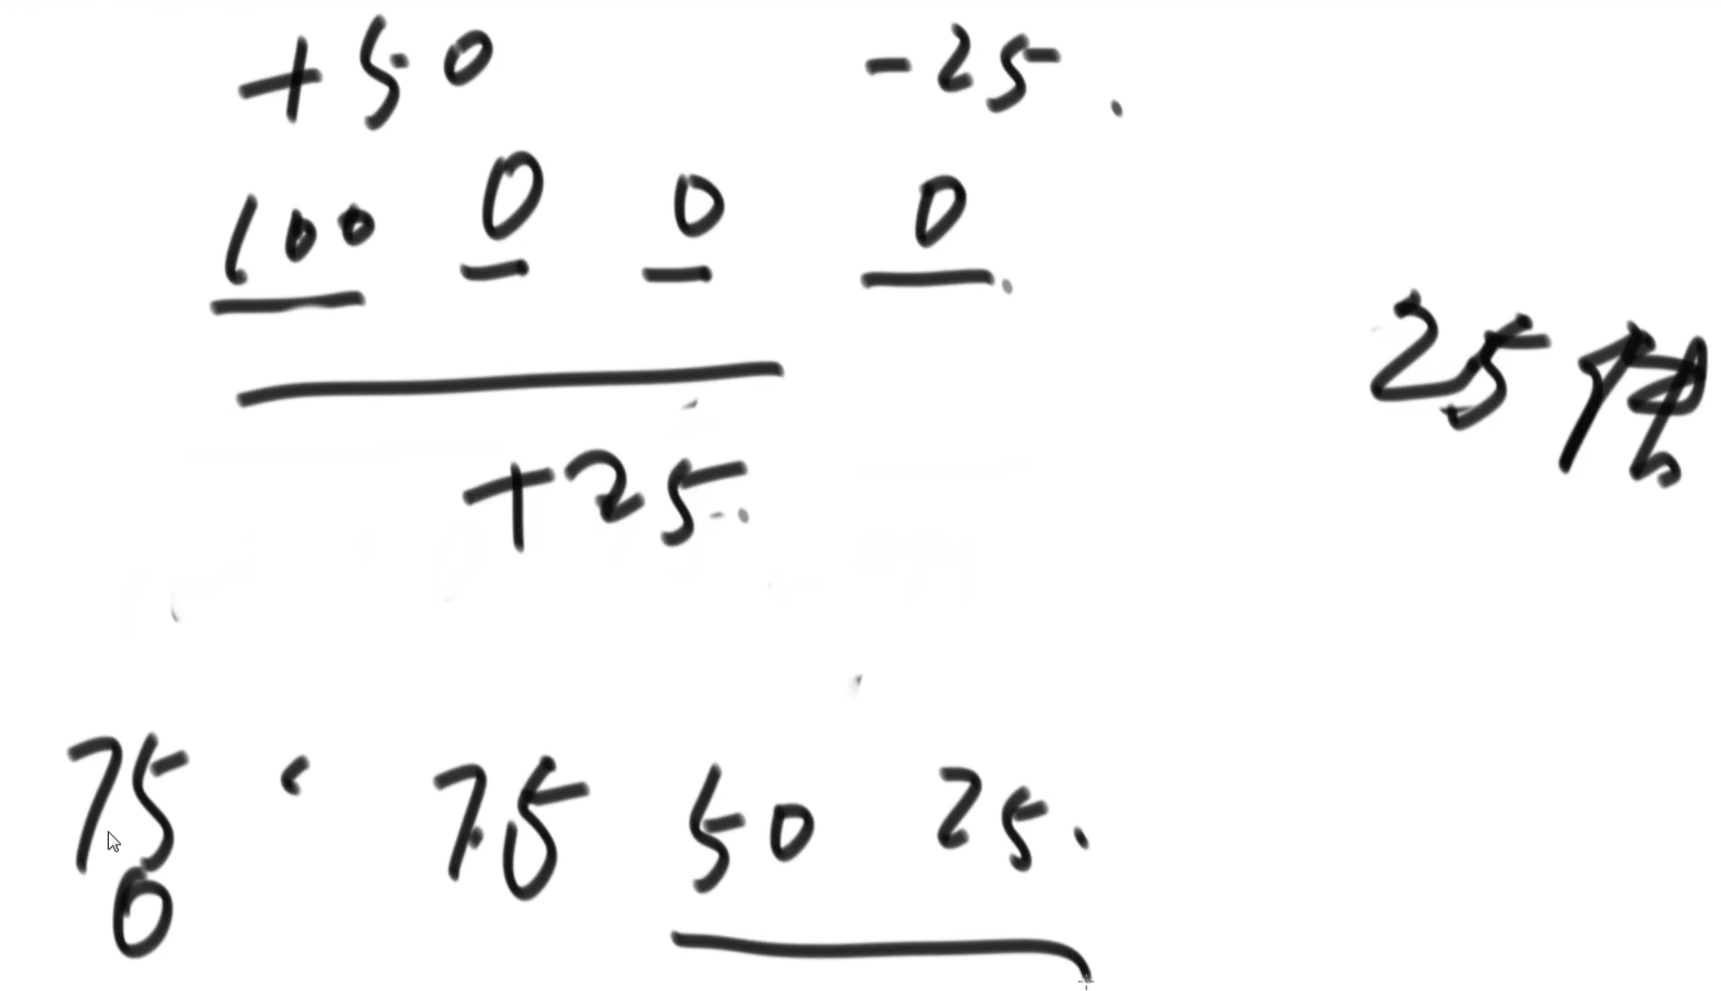 +50 -25.
100 0 0 0.
25
+25.
75 75 50 25.
0